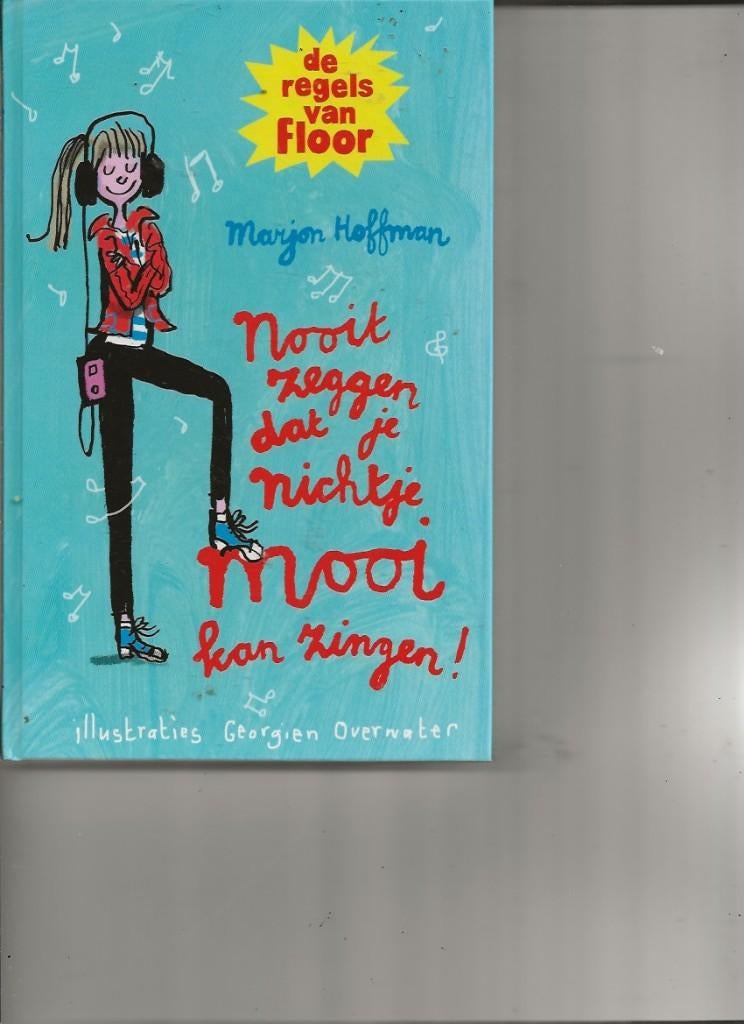 de
regels
van
Floor
Marjon Hoffman
Nooit
zeggen
dat je
nichtje
mooi
kan zingen!
illustraties Georgien Overwater